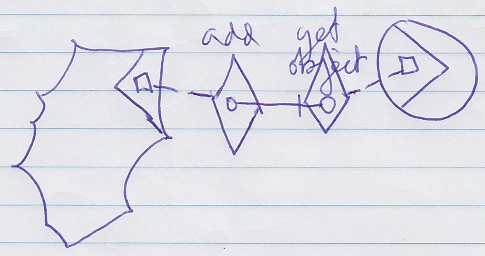 add
get
object